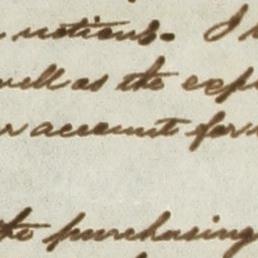 notions. I
well as the exp
account for
the purchasing